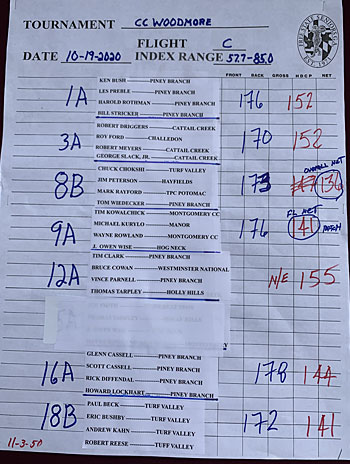 TOURNAMENT CC WOODMORE
FLIGHT C
DATE 10-19-2020 INDEX RANGE 57.7-85.0
FRONT BACK GROSS HDCP NET
KEN BUSH----------PINEY BRANCH
1A LES PREBLE ----------PINEY BRANCH 176 152
HAROLD ROTHMAN ----------PINEY BRANCH
BILL STRICKER ----------PINEY BRANCH
ROBERT DRIGGERS----------CATTAIL CREEK
3A ROY FORD----------CHALLEDON 170 152
ROBERT MEYERS ----------CATTAIL CREEK
GEORGE SLACK, JR.----------CATTAIL CREEK
CHUCK CHOKSHI ----------TURF VALLEY OVERALL NET
8B JIM PETERSON----------HAYFIELDS 173 136
MARK RAYFORD ----------TPC POTOMAC
TOM WIEDECKER ----------PINEY BRANCH
TIM KOWALCHICK ----------MONTGOMERY CC FL NET
9A MICHAEL KURYLO ----------MANOR 176 141
WAYNE ROWLAND ----------MONTGOMERY CC
J. OWEN WISE----------HOG NECK
TIM CLARK ----------PINEY BRANCH
12A BRUCE COWAN ----------WESTMINSTER NATIONAL
VINCE PARNELL ----------PINEY BRANCH N/E 155
THOMAS TARPLEY----------HOLLY HILLS
GLENN CASSELL ----------PINEY BRANCH
16A SCOTT CASSELL ----------PINEY BRANCH 178 144
RICK DIFFENDAL ----------PINEY BRANCH
HOWARD LOCKHART----------PINEY BRANCH
PAUL BECK ----------TURF VALLEY
18B ERIC BUSHBY ----------TURF VALLEY 172 141
ANDREW KAHN ----------TURF VALLEY
ROBERT REESE ----------TUFF VALLEY
11-3-50